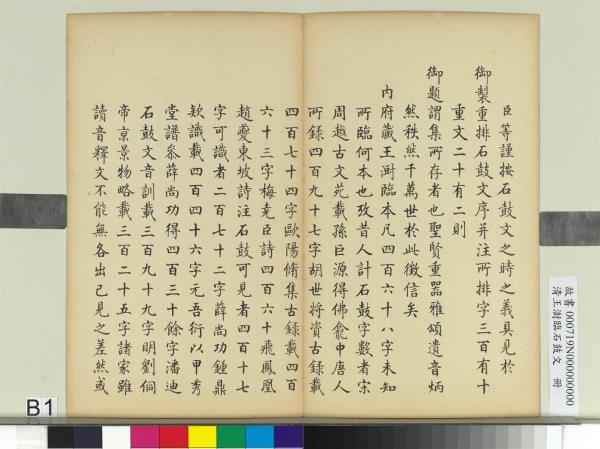 臣等謹按石鼓文之時之義具見於
御製重排石鼓文序并注所排字三百有十
重文二十有二則
御題謂集所存者也聖賢重器雅頌遺音炳
然秩然千萬世於此徵信矣
內府藏王澍臨本凡四百六十八字未知
所臨何本也攷昔人計石鼓字數者宋
周越古文苑載孫巨源得佛龕中唐人
所錄四百九十七字胡世將資古錄載
四百七十四字歐陽脩集古錄載四百
六十三字梅堯臣詩四百六十飛鳳凰
趙夔東坡詩注石鼓可見者四百十七
字可識者二百七十二字薛尚功鍾鼎
欵識載四百四十六字元吾衍以甲秀
堂譜叅薛尚功得四百三十餘字潘迪
石鼓文音訓載三百九十九字明劉侗
帝京景物略載三百二十五字諸家雖
讀音釋文不能無各出己見之差然或
故書 000719N000000000
清王澍臨石鼓文 冊
B1